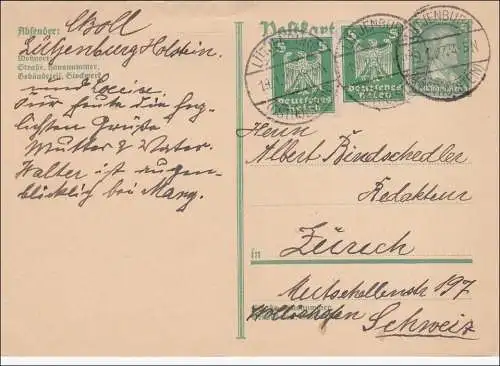 Absender: Skoll
Lütjenburg Holstein.
Wohnort,
Straße, Hausnummer,
Gebäudeteil, Stockwerk
und
Für heute die herz-
lichsten Grüße
Mutter & Vater.
Walter ist augen-
blicklich bei Mang.
Postkarte
LÜTJENBURG
Deutsches
Reich
Deutsches
Reich
5
5
Herrn
Albert Bindschedler
Redakteur
in Zürich
Mutschellenstr 197
Wollishofen
Schweiz